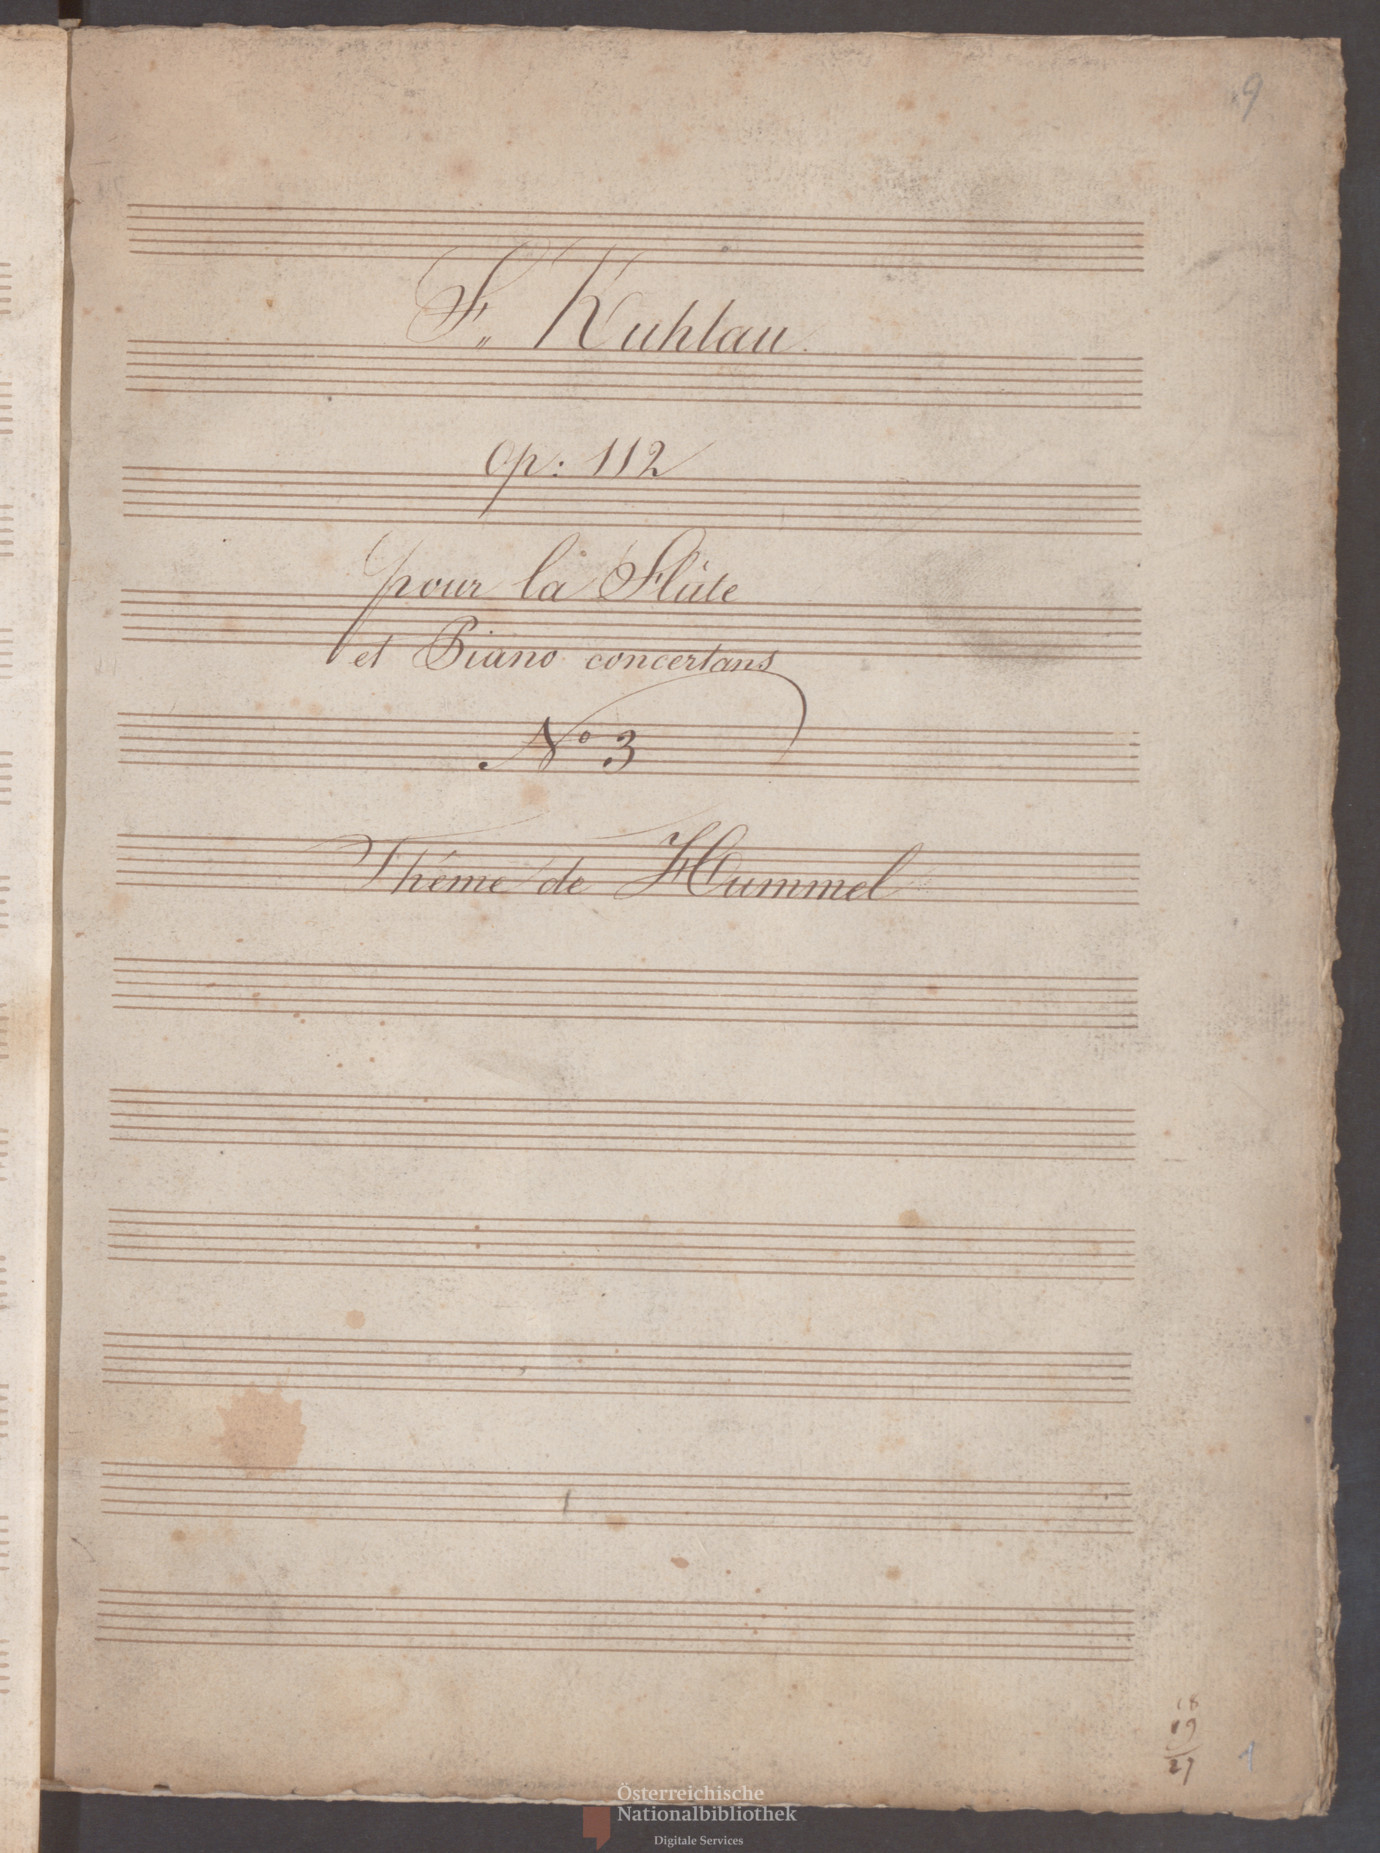 9
F„ Kuhlau.
Op: 112
pour la Flûte
et Piano concertans
No 3
Théme de Hummel
18
19
27
1
Österreichische
Nationalbibliothek
Digitale Services